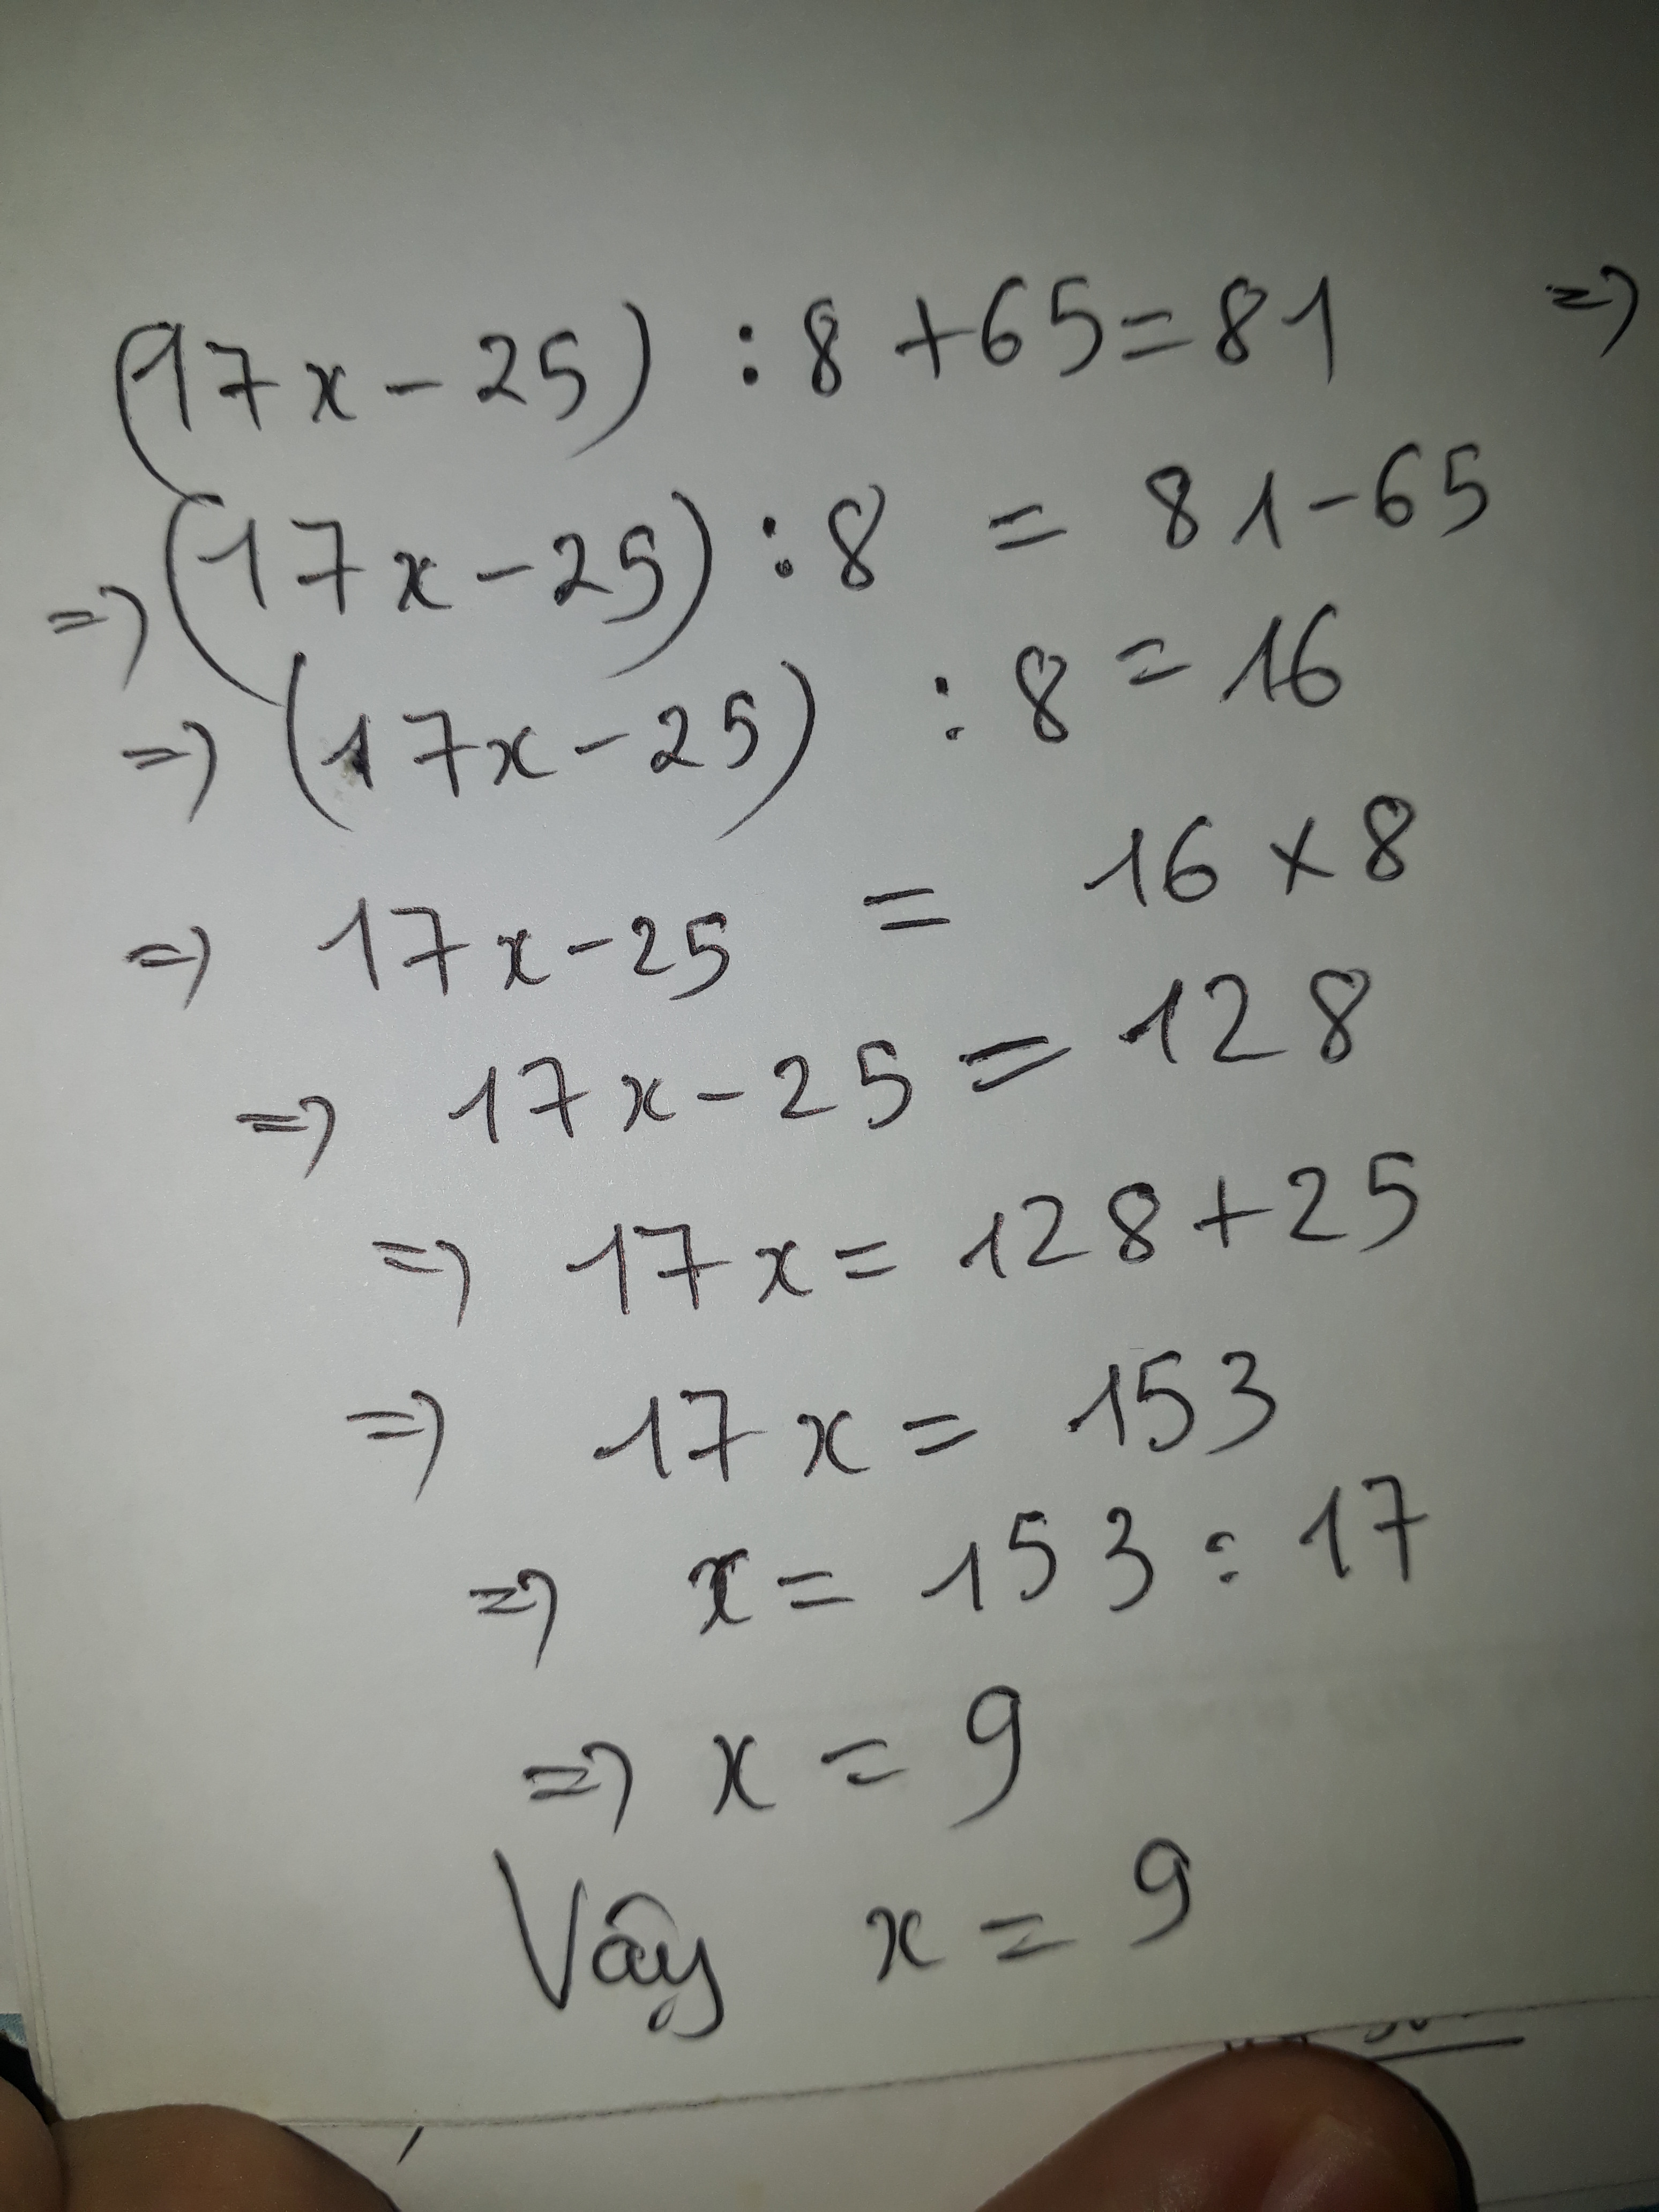 (17x - 25) : 8 + 65 = 81 =>
=> (17x - 25) : 8 = 81 - 65
=> (17x - 25) : 8 = 16
=> 17x - 25 = 16 x 8
=> 17x - 25 = 128
=> 17x = 128 + 25
=> 17x = 153
=> x = 153 : 17
=> x = 9
Vậy x = 9